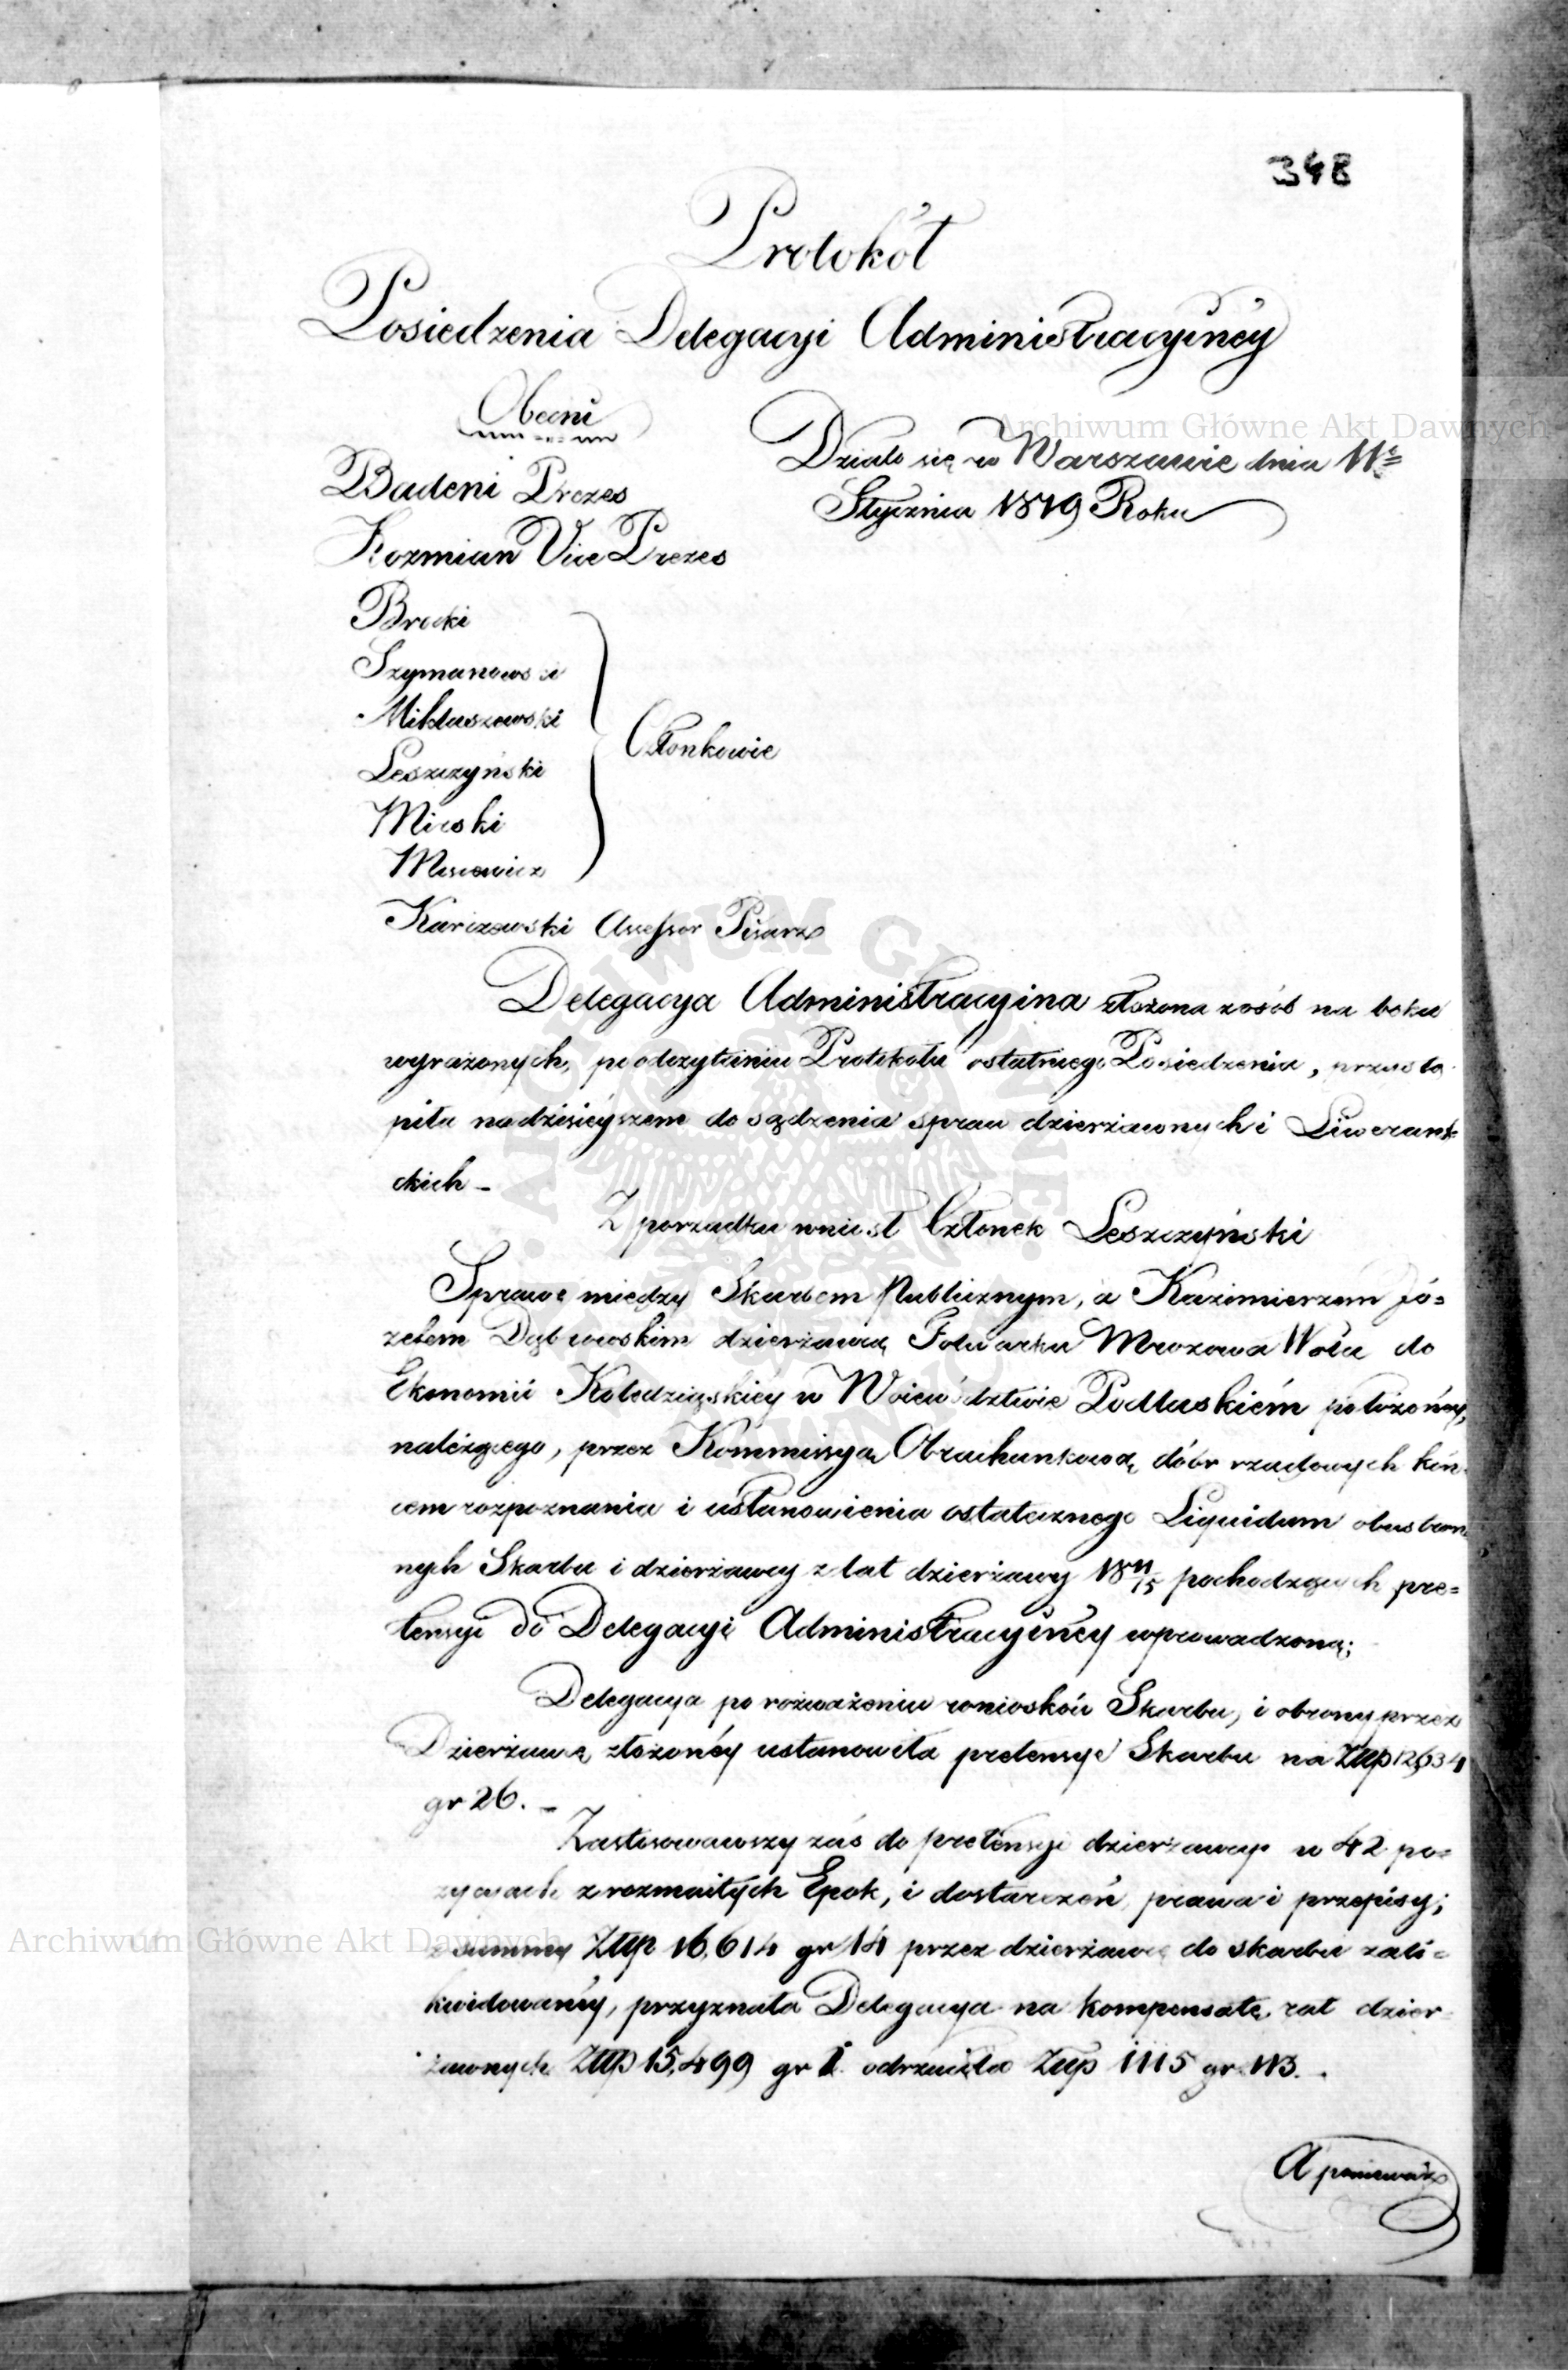 348
Protokół
Posiedzenia Delegacyi Administracyiney
Obecni
Badeni Prezes
Kozmian Vice Prezes
Brocki
Szymanowski
Mikłaszewski
Leszczyński
Mirski
Karczewski Assessor Pisarz
Członkowie
Działo się w Warszawie dnia 11º
Stycznia 1819 Roku
Delegacya Administracyina złożona z osób na boku
wyrażonych, po odczytaniu Protokułu ostatniego Posiedzenia, przystą
piła na dzisieyszem do sądzenia spraw dzierżawnych i Liweranc
ckich –
Z porządku wniósł Członek Leszczyński
Sprawę między Skarbem Publicznym, a Kazimierzem Jó=
zefem Dąbrowskim dzierżawcą Folwarku Mrozowa Wola do
Ekonomii Kołodziąskiéy w Woiewództwie Podlaskiém położonéy,
należącego, przez Kommissyą Obrachunkową dóbr rządowych koń
cem rozpoznania i ustanowienia ostatecznego Liquidum obustron
nych Skarbu i dzierżawcy z lat dzierżawy 18 11/15 pochodzących pre=
tensyi do Delegacyi Administracyinéy wprowadzoną;
Delegacya po rozważeniu wniosków Skarbu, i obrony przez
Dzierżawcę złożonéy ustanowiła pretensye Skarbu na Złp 12,634
gr 26. –
Zastosowawszy zaś do pretensyi dzierżawcy w 42 po=
zycyach z rozmaitych Epok, i dostarczeń, prawa i przepisy;
z summy Złp 16,614 gr 14 przez dzierżawcę do skarbu zali=
kwidowanéy, przyznała Delegacya na kompensatę rat dzier
żawnych Złp 15,499 gr 1. odrzuciła Złp 1115 gr 13. –
A ponieważ
Archiwum Główne Akt Dawnych
Archiwum Główne Akt Dawnych